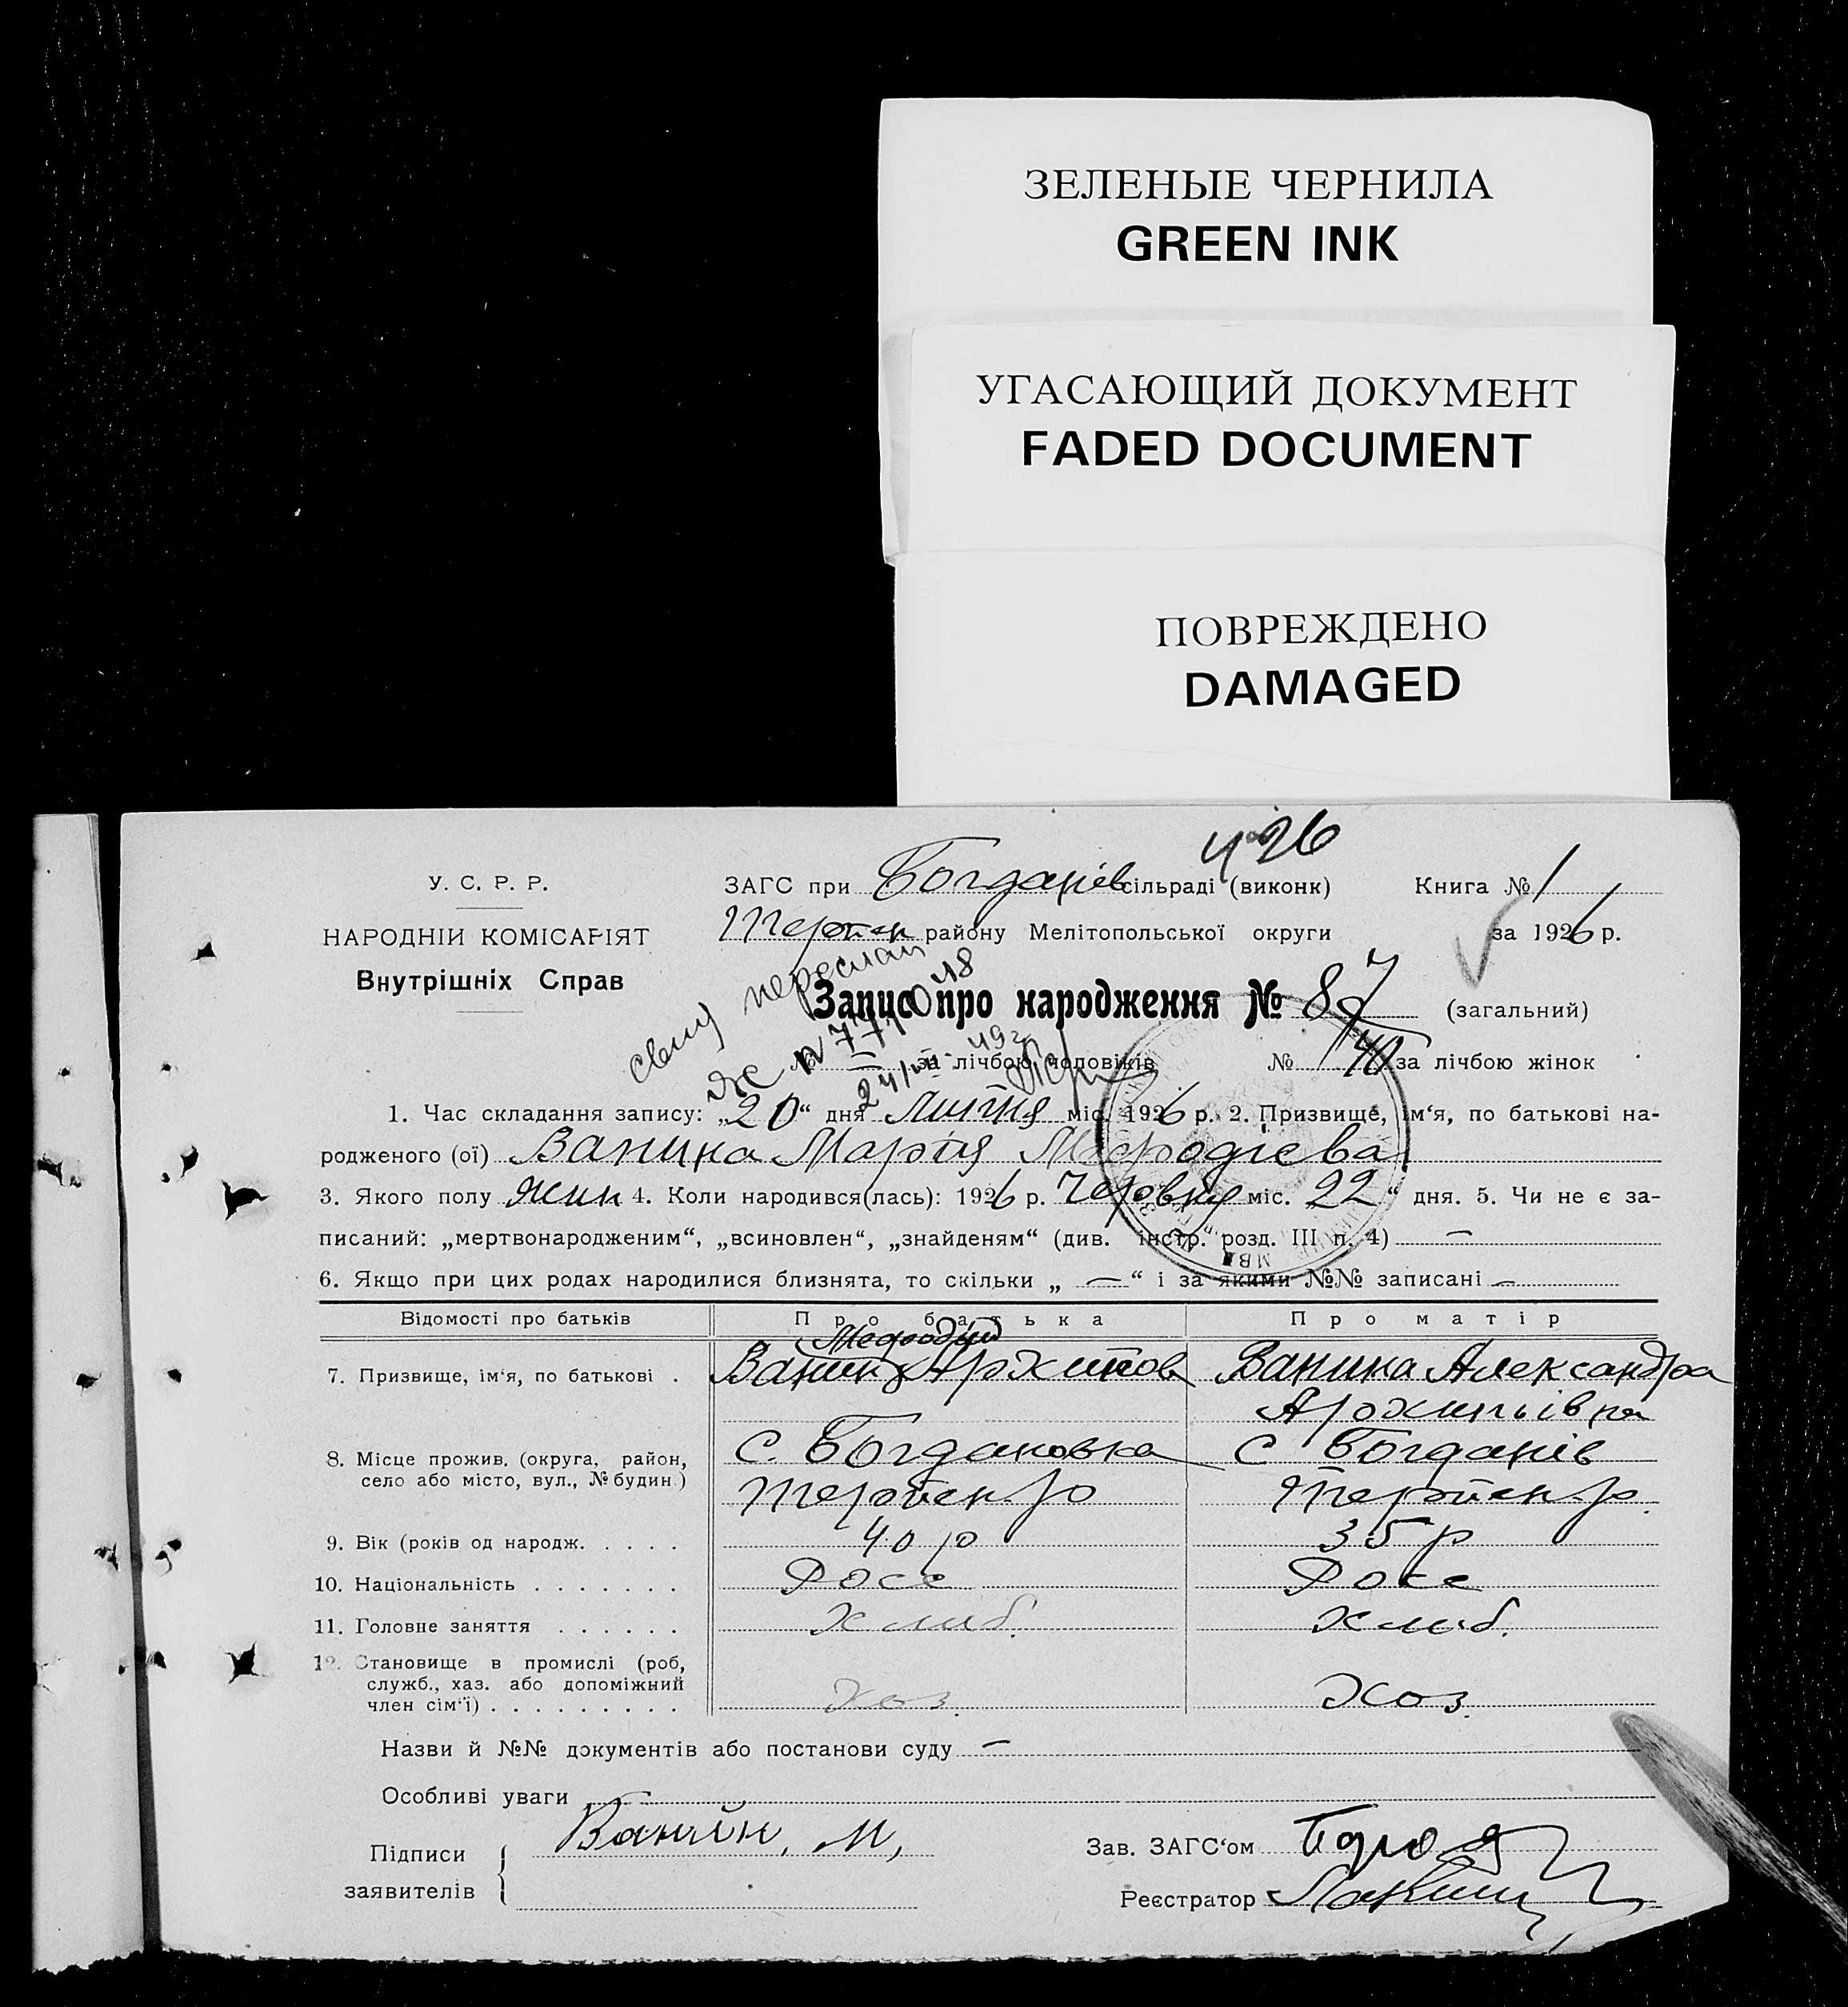 ЗЕЛЕНЫЕ ЧЕРНИЛА
GREEN INK
УГАСАЮЩИЙ ДОКУМЕНТ
FADED DOCUMENT
ПОВРЕЖДЕНО
DAMAGED
У. С. Р. Р.
НАРОДНІЙ КОМІСАРІЯТ
Внутрішніх Справ
ЗАГС при Богданів сільраді (виконк)
Книга № 1
Терпен району Мелітопольської округи
за 1926 р.
Запис про народження № 87 (загальний)
№ за лічбою чоловіків № 40 за лічбою жінок
1. Час складання запису: „20“ дня Липня міс. 1926 р. 2. Призвище, ім‘я, по батькові на-
родженого (ої) Ванина Марія Мефодієва
3. Якого полу жин 4. Коли народився(лась): 1926 р. Червня міс. 22“ дня. 5. Чи не є за-
писаний: „мертвонародженим“, „всиновлен“, „знайденям“ (див. інстр. розд. III п. 4) —
6. Якщо при цих родах народилися близнята, то скільки „ — “ і за якими №№ записані —
Відомості про батьків Про батька Про матір
Мефодий
7. Призвище, ім‘я, по батькові . Ванин Архипов Ванина Александра
Архипьівна
8. Місце прожив. (округа, район, с. Богдановка с Богданів
село або місто, вул., № будин.) Терпен р Терпен р.
9. Вік (років од народж. . . . . 40 р 35 р
10. Національність . . . . . . . Росс Росс
11. Головне заняття . . . . . . Хлиб. Хлиб.
12. Становище в промислі (роб,
служб., хаз. або допоміжний
член сім‘ї) . . . . . . . . . Хоз. Хоз.
Назви й №№ документів або постанови суду —
Особливі уваги
Підписи
заявителів
Ванин, М,
Зав. ЗАГС‘ом
Реєстратор